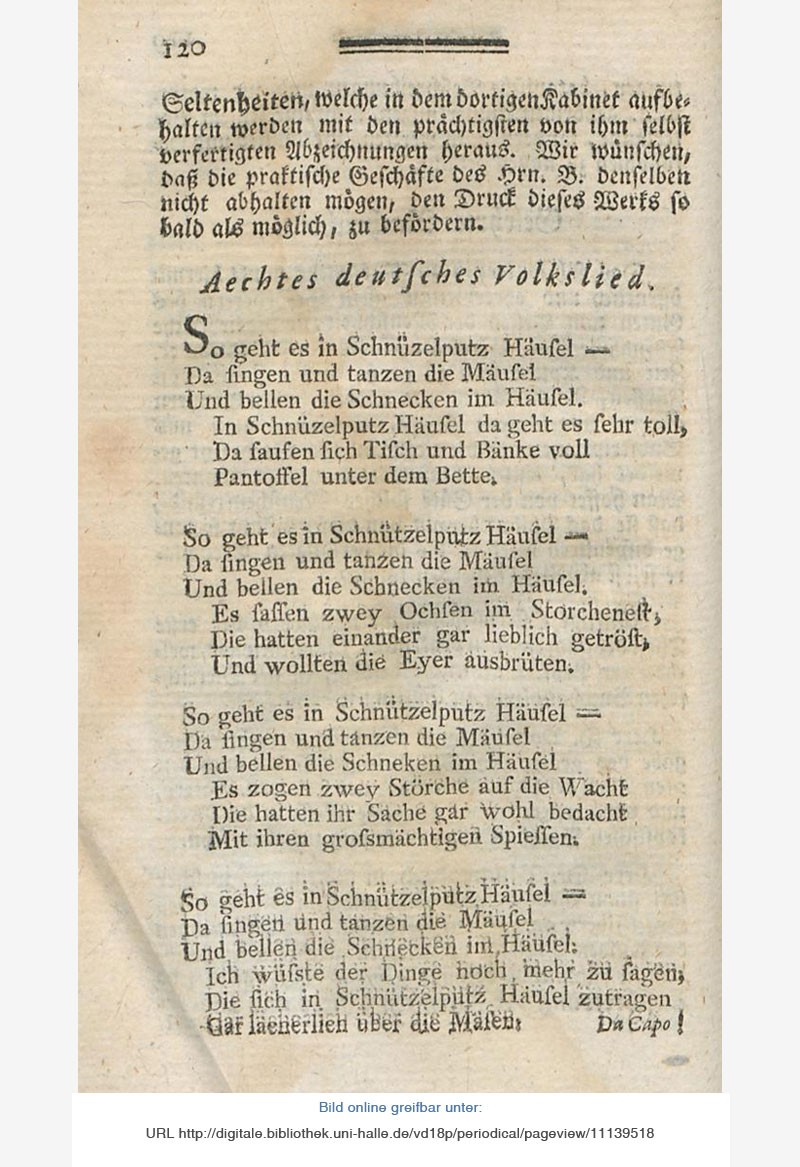 120
Seltenheiten, welche in dem dortigen Kabinet aufbe-
halten werden mit den prächtigsten von ihm selbst
verfertigten Abzeichnungen heraus. Wir wünschen,
daß die praktische Geschäfte des Hrn. B. denselben
nicht abhalten mögen, den Druck dieses Werks so
bald als möglich, zu befördern.
Aechtes deutſches Volkslied.
So geht es in Schnüzelputz Häuſel —
Da ſingen und tanzen die Mäuſel
Und bellen die Schnecken im Häuſel.
In Schnüzelputz Häuſel da geht es ſehr toll,
Da ſaufen ſich Tiſch und Bänke voll
Pantoffel unter dem Bette.
So geht es in Schnützelputz Häuſel —
Da ſingen und tanzen die Mäuſel
Und bellen die Schnecken im Häuſel.
Es ſaſſen zwey Ochſen im Storcheneſt,
Die hatten einander gar lieblich getröſt,
Und wollten die Eyer ausbrüten.
So geht es in Schnützelputz Häuſel —
Da ſingen und tanzen die Mäuſel
Und bellen die Schneken im Häuſel
Es zogen zwey Störche auf die Wacht
Die hatten ihr Sache gar wohl bedacht
Mit ihren groſsmächtigen Spieſſen.
So geht es in Schnützelputz Häuſel —
Da ſingen und tanzen die Mäuſel
Und bellen die Schnecken im Häuſel.
Ich wüſste der Dinge noch mehr zu ſagen,
Die ſich in Schnützelputz Häuſel zutragen
Gar lächerlich über die Maſen. Da Capo!
Bild online greifbar unter:
URL http://digitale.bibliothek.uni-halle.de/vd18p/periodical/pageview/11139518